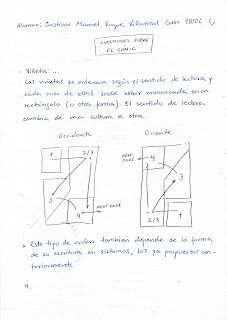 Alumno: Cristian Manuel Duque Villarreal Curso
CUESTIONES SOBRE
EL CÓMIC
- Viñeta: ...
Las viñetas se ordenan según el sentido de lectura y
cada una de ellas suele estar enmarcada en un
rectángulo (u otra forma). El sentido de lectura
cambia de una cultura a otra.
Occidente
Oriente
1
2/3
3
4
NEXT
PAGE
NEXT
PAGE
4
3
2/3
1
Este tipo de orden también depende de la forma
de su escritura en sistemas, los ya propuestos an-
teriormente.